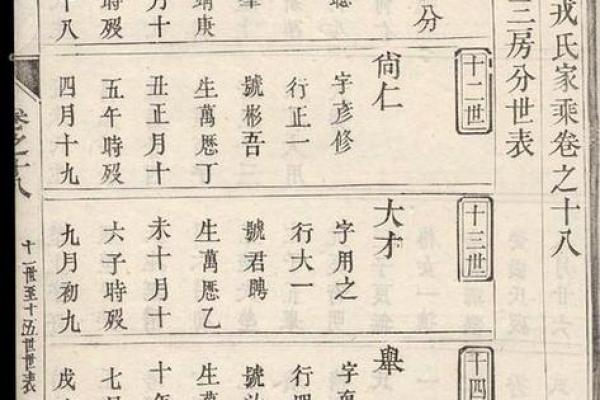 戎氏家乘卷之十八
三房分世表
分
靖庚
月十
時殁
十八
十二世
尙仁
字彥修
行正一
號彬吾
生萬厯丁
丑正月十
五午時殁
四月十九
十三世
大才
字用之
行大一
號君聘
生萬厯乙
未十月十
六子時殁
九月初九
十四
舉
字
行
號
生萬
十年
七
戌
卷之十八
十一世至十五世世表